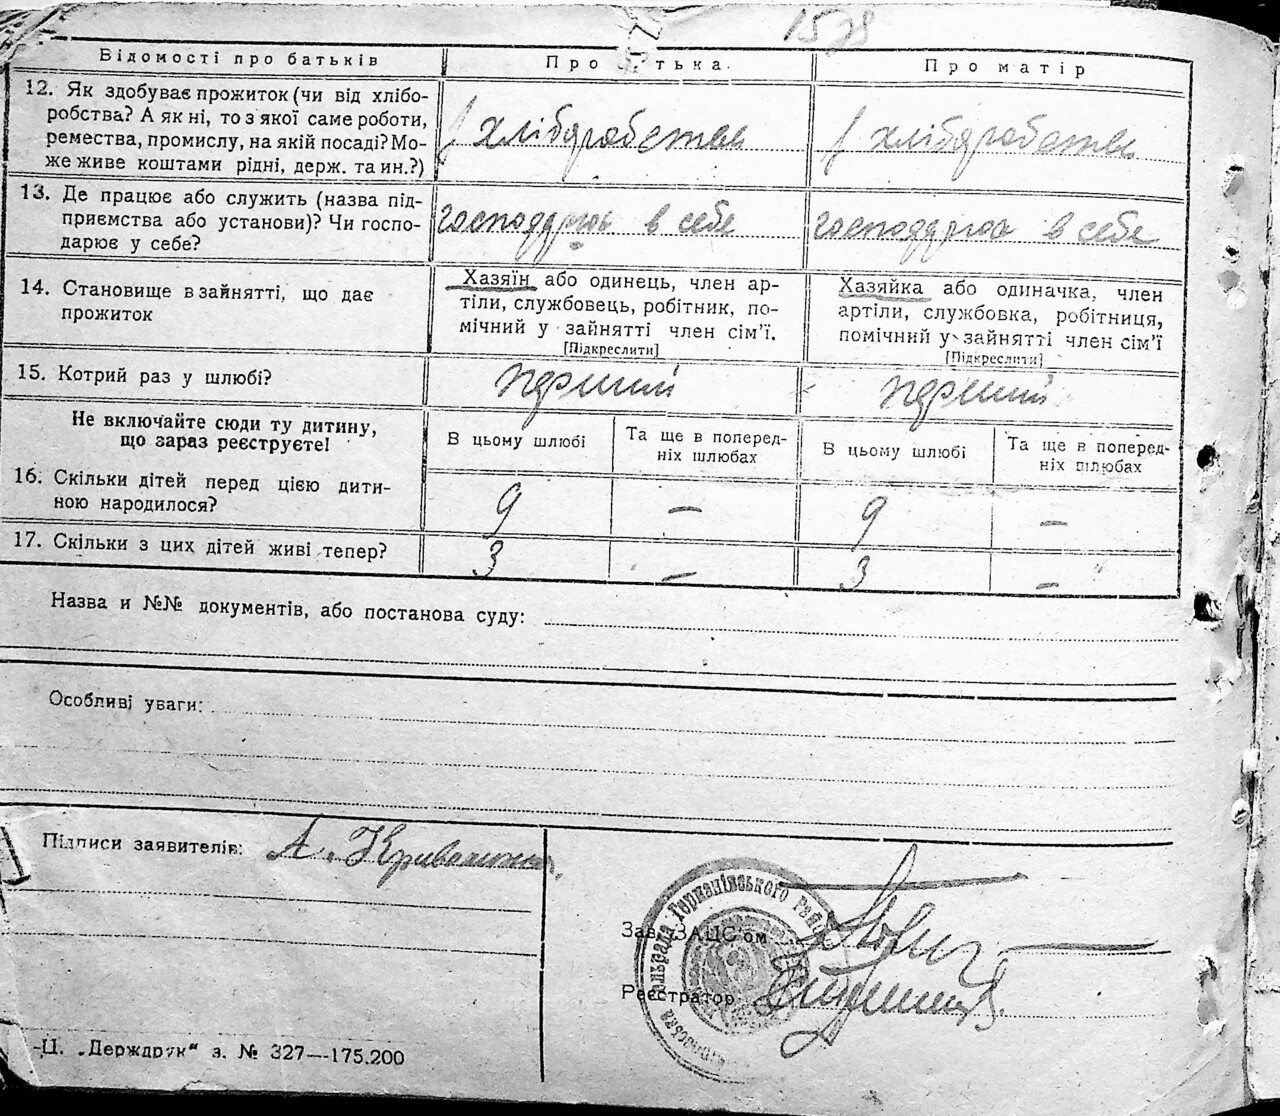 1578
Відомості про батьків
Про батька
Про матір
12. Як здобуває прожиток (чи від хлібо-
робства? А як ні, то з якої саме роботи,
ремества, промислу, на якій посаді? Мо-
же живе коштами рідні, держ. та ин.?)
хліборобства
хліборобства
13. Де працює або служить (назва під-
приємства або установи)? Чи госпо-
дарює у себе?
господарює в себе
господарює в себе
14. Становище в зайнятті, що дає
прожиток
Хазяїн або одинець, член ар-
тіли, службовець, робітник, по-
мічний у зайнятті член сім’ї.
[Підкреслити]
Хазяйка або одиначка, член
артіли, службовка, робітниця,
помічний у зайнятті член сім’ї
[Підкреслити]
15. Котрий раз у шлюбі?
перший
перший
Не включайте сюди ту дитину,
що зараз реєструєте!
В цьому шлюбі
Та ще в поперед-
ніх шлюбах
В цьому шлюбі
Та ще в поперед-
ніх шлюбах
16. Скільки дітей перед цією дити-
ною народилося?
9
—
9
—
17. Скільки з цих дітей живі тепер?
3
—
3
—
Назва и №№ документів, або постанова суду:
Особливі уваги:
Підписи заявителів:
А.
Германівського Рай
Зав. ЗАЦС’ом
Реєстратор
Ц. „Держдрук“ з. № 327—175.200